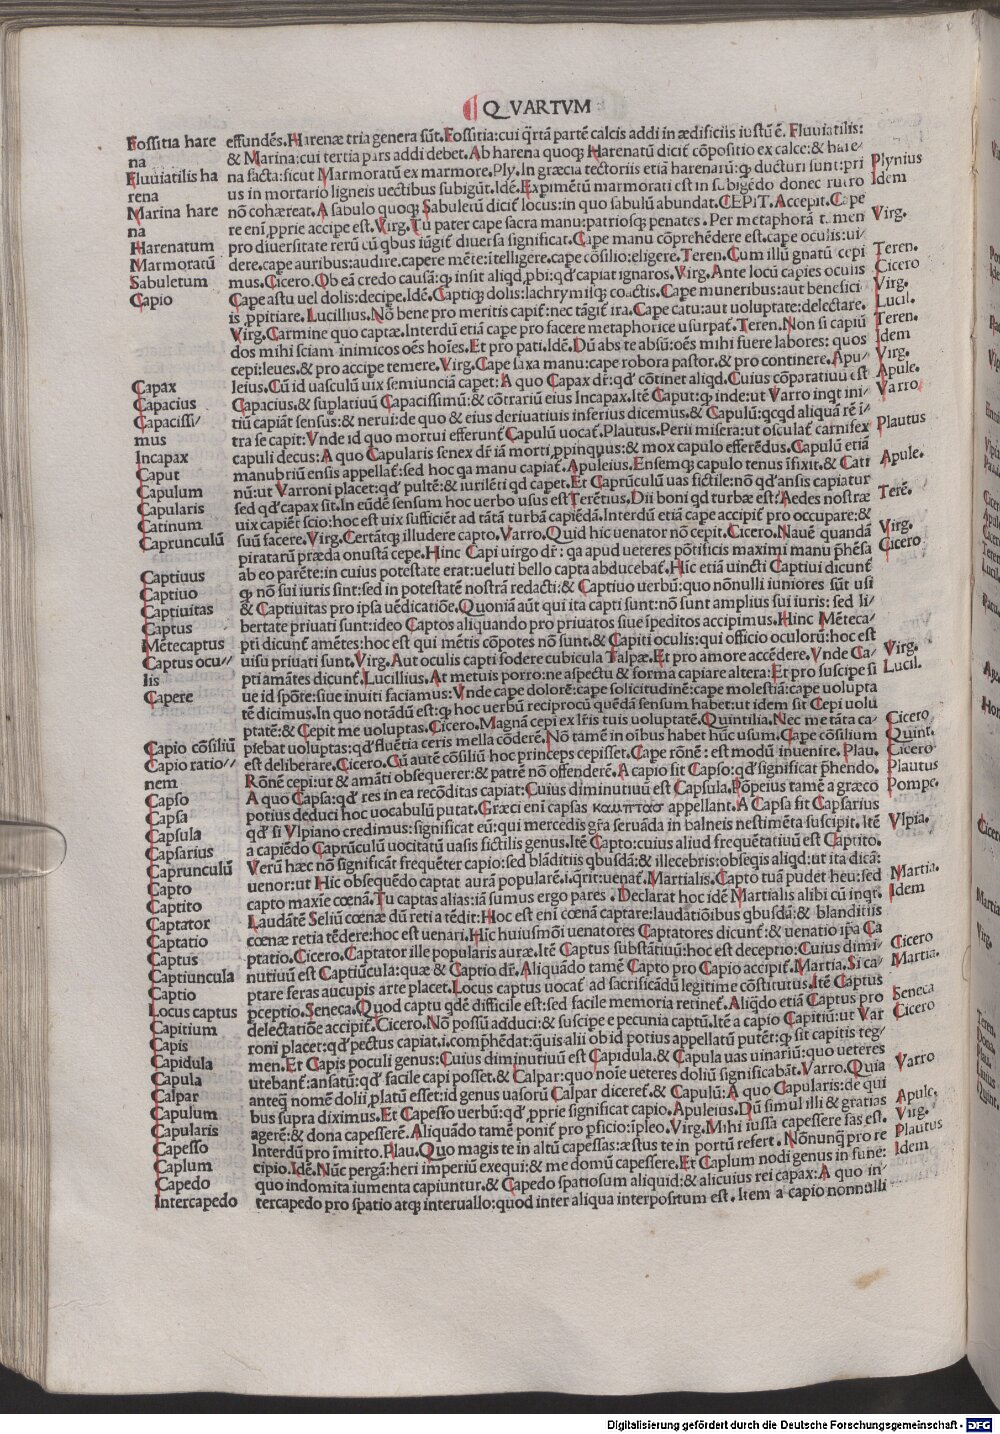 QVARTVM
Fossitia hare
na
Fluuiatilis ha
rena
Marina hare
na
Harenatum
Marmoratū
Sabuletum
Capio
Capax
Capacius
Capacissi/
mus
Incapax
Caput
Capulum
Capularis
Catinum
Caprunculū
Captiuus
Captiuo
Captiuitas
Captus
Mētecaptus
Captus ocu//
lis
Capere
Capio cōsiliū
Capio ratio//
nem
Capso
Capsa
Capsula
Capsarius
Caprunculū
Capto
Captito
Captator
Captatio
Captus
Captiuncula
Captio
Locus captus
Capitium
Capis
Capidula
Capula
Calpar
Capulum
Capularis
Capesso
Caplum
Capedo
Intercapedo
effundēs. Harenæ tria genera sūt. Fossitia: cui q̄rtā partē calcis addi in ædificiis iustū ē. Fluuiatilis:
& Marina: cui tertia pars addi debet. Ab harena quoq; Harenatū dicit̄ cōpositio ex calce: & hare/
na facta: sicut Marmoratū ex marmore. Ply. In græcia tectoriis etiā harenarū: q̄ ducturi sunt: pri
us in mortario ligneis uectibus subigūt. Idē. Expimētū marmorati est in subigēdo donec rutro
nō cohæreat. A sabulo quoq; Sabuletū dicit̄ locus: in quo sabulū abundat. CEPiT. Accepit. Cape
re eni ꝓprie accipe est. Virg. Tu pater cape sacra manu: patriosq; penates. Per metaphorā tamen
pro diuersitate rerū cū qbus iūgit̄ diuersa significat. Cape manu cōprehēdere est. cape oculis: ui/
dere. cape auribus: audire. capere mēte: itelligere. cape cōsilio: eligere. Teren. Cum illū gnatū cepi
mus. Cicero. Ob eā credo causā: q; insit aliqd ꝓbi: qd̄ capiat ignaros. Virg. Ante locū capies oculis
Cape astu uel dolis: decipe. Idē. Captiq; dolis: lachrymisq; coactis. Cape muneribus: aut benefici
is ꝓpitiare. Lucillius. Nō bene pro meritis capit̄: nec tāgit̄ ira. Cape catu: aut uoluptate: delectare.
Virg. Carmine quo captæ. Interdū etiā cape pro facere metaphorice usurpat̄. Teren. Non si capiū
dos mihi sciam inimicos oēs hoīes. Et pro pati. Idē. Dū abs te absū: oēs mihi fuere labores: quos
cepi: leues. & pro accipe temere. Virg. Cape saxa manu: cape robora pastor. & pro continere. Apu/
leius. Cū id uasculū uix semiunciā capet: A quo Capax dr̄: qd̄ cōtinet aliqd. Cuius cōparatiuū est
Capacius. & suplatiuū Capacissimū: & cōtrariū eius Incapax. Itē Caput: q; inde: ut Varro inqt ini/
tiū capiāt sensus: & nerui: de quo & eius deriuatiuis inferius dicemus. & Capulū: qcqd aliquā rē i/
tra se capit: Vnde id quo mortui efferunt̄ Capulū uocat̄. Plautus. Perii misera: ut osculat̄ carnifex
capuli decus: A quo Capularis senex dr̄ iā morti ꝓpinquus: & mox capulo efferēdus. Capulū etiā
manubriū ensis appellat̄: sed hoc qa manu capiat̄. Apuleius. Ensemq; capulo tenus īfixit. & Cati
nū: ut Varroni placet: qd̄ pultē: & iurilēti qd capet. Et Caprūculū uas fictile: nō qd̄ ansis capiatur
sed qd̄ capax sit. In eūdē sensum hoc uerbo usus est Terētius. Dii boni qd turbæ est? Aedes nostræ
uix capiēt scio: hoc est uix sufficiēt ad tātā turbā capiēdā. Interdū etiā cape accipit̄ pro occupare: &
suū facere. Virg. Certātq; illudere capto. Varro. Quid hic uenator nō cepit. Cicero. Nauē quandā
piratarū præda onustā cepe. Hinc Capi uirgo dr̄: qa apud ueteres pōtificis maximi manu p̄hēsa
ab eo parēte: in cuius potestate erat: ueluti bello capta abducebat̄. Hic etiā uincti Captiui dicunt̄
q; nō sui iuris sint: sed in potestatē nostrā redacti: & Captiuo uerbū: quo nōnulli iuniores sūt usi
& Captiuitas pro ipsa uēdicatiōe. Quoniā aūt qui ita capti sunt: nō sunt amplius sui iuris: sed li/
bertate priuati sunt: ideo Captos aliquando pro priuatos siue īpeditos accipimus. Hinc Mēteca/
pti dicunt̄ amētes: hoc est qui mētis cōpotes nō sunt. & Capiti oculis: qui officio oculorū: hoc est
uisu priuati sunt. Virg. Aut oculis capti fodere cubicula Talpæ. Et pro amore accēdere. Vnde Ca/
pti amātes dicunt̄. Lucillius. At metuis porro: ne aspectu & forma capiare altera: Et pro suscipe si
ue id spōte: siue inuiti faciamus: Vnde cape dolorē: cape solicitudinē: cape molestiā: cape uolupta
tē dicimus. In quo notādū est: q; hoc uerbū reciprocū quēdā sensum habet: ut idem sit Cepi uolu
ptatē: & Cepit me uoluptas. Cicero. Magnā cepi ex lr̄is tuis uoluptatē. Quintilia. Nec me tāta ca/
piebat uoluptas: qd̄ fluētia ceris mella cōderē. Nō tamē in oībus habet hūc usum. Cape cōsilium
est deliberare. Cicero. Cū autē cōsiliū hoc princeps cepisset. Cape rōnē: est modū inuenire. Plau.
Rōnē cepi: ut & amāti obsequerer: & patrē nō offenderē. A capio fit Capso: qd̄ significat p̄hendo.
A quo Capsa: qd̄ res in ea recōditas capiat: Cuius diminutiuū est Capsula. Pōpeius tamē a græco
potius deduci hoc uocabulū putat. Græci eni capsas καμπτασ appellant. A Capsa fit Capsarius
qd̄ si Vlpiano credimus: significat eū: qui mercedis gr̄a seruāda in balneis uestimēta suscipit. Itē
a capiēdo Caprūculū uocitatū uasis fictilis genus. Itē Capto: cuius aliud frequētatiuū est Captito.
Verū hæc nō significāt frequēter capio: sed blāditiis qbusdā: & illecebris: obseqis aliqd: ut ita dicā:
uenor: ut Hic obsequēdo captat aurā popularē. i. qrit: uenat̄. Martialis. Capto tuā pudet heu: sed
capto maxīe cœnā. Tu captas alias: iā sumus ergo pares. Declarat hoc idē Martialis alibi cū inqt.
Laudātē Seliū cœnæ dū reti a tēdit: Hoc est eni cœnā captare: laudatiōibus qbusdā: & blanditiis
cœnæ retia tēdere: hoc est uenari. Hic huiusmōi uenatores Captatores dicunt̄: & uenatio ip̄a Ca
ptatio. Cicero. Captator ille popularis auræ. Itē Captus substātiuū: hoc est deceptio: Cuius dimi/
nutiuū est Captiūcula: quæ & Captio dr̄. Aliquādo tamē Capto pro Capio accipit̄. Martia. Si ca/
ptare feras aucupis arte placet. Locus captus uocat̄ ad sacrificādū legitime cōstitutus. Itē Captus
ꝑceptio. Seneca. Quod captu qdē difficile est: sed facile memoria retinet̄. Aliqdo etiā Captus pro
delectatiōe accipit̄. Cicero. Nō possū adduci: & suscipe e pecunia captū. Itē a capio Capitiū: ut Var
roni placet: qd̄ pectus capiat. i. comp̄hēdat: quis alii ob id potius appellatū putēt: q; sit capitis teg/
men. Et Capis poculi genus: Cuius diminutiuū est Capidula. & Capula uas uinariū: quo ueteres
utebant̄: ansatū: qd̄ facile capi posset. & Calpar: quo noīe ueteres doliū significabāt. Varro. Quia
anteq̄ nomē dolii ꝓlatū esset: id genus uasorū Calpar diceret̄. & Capulū: A quo Capularis: de qui
bus supra diximus. Et Capesso uerbū: qd̄ ꝓprie significat capio. Apuleius. Dū simul illi & gratias
agerē: & dona capesserē. Aliquādo tamē ponit̄ pro ꝑficio: ipleo. Virg. Mihi iussa capessere fas est.
Interdū pro īmitto. Plau. Quo magis te in altū capessas: æstus te in portū refert. Nōnunq̄ pro re
cipio. Idē. Nūc pergā: heri imperiū exequi: & me domū capessere. Et Caplum nodi genus in fune:
quo indomita iumenta capiuntur. & Capedo spatiosum aliquid: & alicuius rei capax: A quo in/
tercapedo pro spatio atq; interuallo: quod inter aliqua interpositum est. Item a capio nonnulli
Plynius
Idem
Virg.
Teren.
Cicero
Virg.
Lucil.
Teren.
Idem
Virg.
Apule.
Varro
Plautus
Apule.
Terē.
Virg.
Cicero
Virg.
Lucil.
Cicero
Quint.
Cicero
Plautus
Pompe.
Vlpia.
Martia.
Idem
Cicero
Martia.
Seneca
Cicero
Varro
Apule.
Virg.
Plautus
Idem
Digitalisierung gefördert durch die Deutsche Forschungsgemeinschaft - DFG